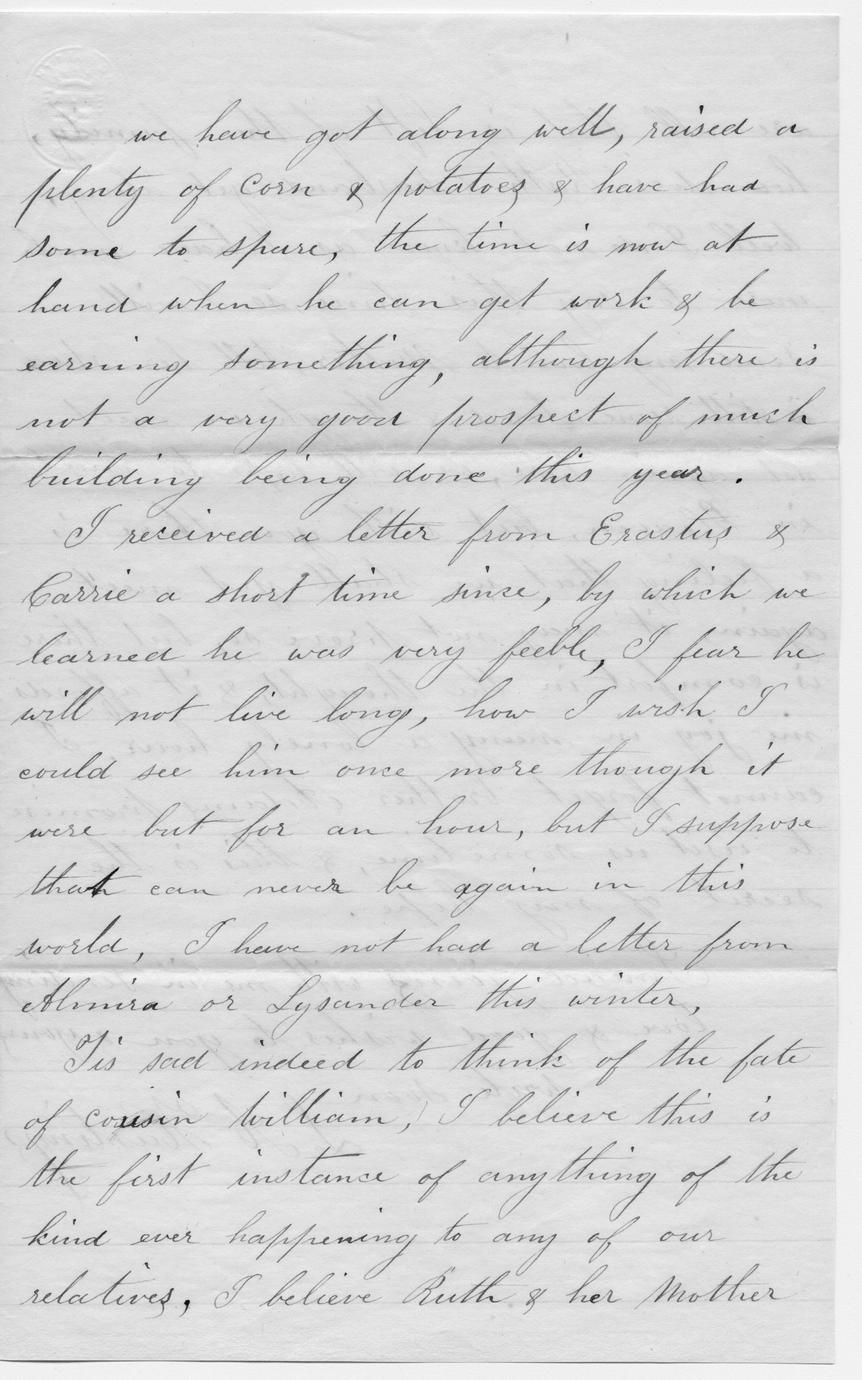 we have got along well, raised a
plenty of corn & potatoes & have had
some to spare, the time is now at
hand when he can get work & be
earning something, although there is
not a very good prospect of much
building being done this year.
I received a letter from Erastus &
Carrie a short time since, by which we
learned he was very feeble, I fear he
will not live long, how I wish I
could see him once more though it
were but for an hour, but I suppose
that can never be again in this
world, I have not had a letter from
Almira or Lysander this winter,
Tis sad indeed to think of the fate
of cousin William, I believe this is
the first instance of anything of the
kind ever happening to any of our
relatives, I believe Ruth & her Mother